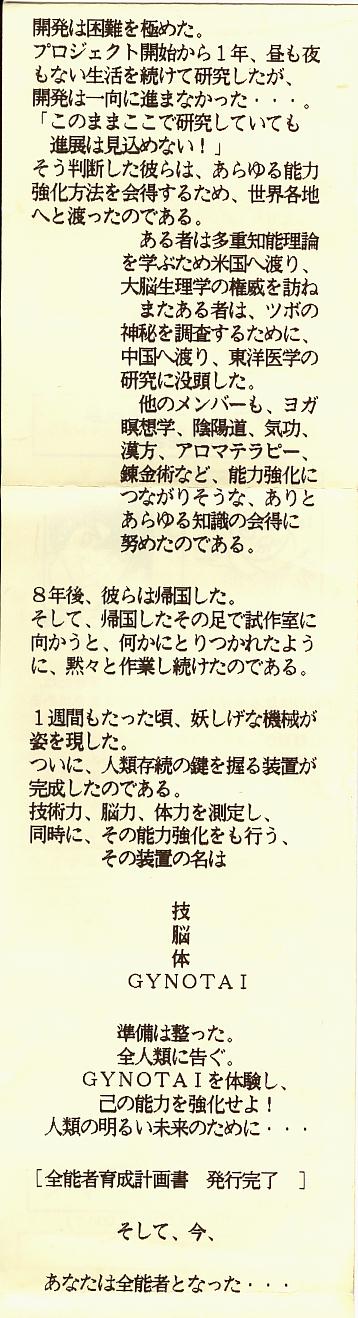 開発は困難を極めた。
プロジェクト開始から１年、昼も夜
もない生活を続けて研究したが、
開発は一向に進まなかった・・・。
「このままここで研究していても
進展は見込めない！」
そう判断した彼らは、あらゆる能力
強化方法を会得するため、世界各地
へと渡ったのである。
ある者は多重知能理論
を学ぶため米国へ渡り、
大脳生理学の権威を訪ね
またある者は、ツボの
神秘を調査するために、
中国へ渡り、東洋医学の
研究に没頭した。
他のメンバーも、ヨガ
瞑想学、陰陽道、気功、
漢方、アロマテラピー、
錬金術など、能力強化に
つながりそうな、ありと
あらゆる知識の会得に
努めたのである。
８年後、彼らは帰国した。
そして、帰国したその足で試作室に
向かうと、何かにとりつかれたよう
に、黙々と作業し続けたのである。
１週間もたった頃、妖しげな機械が
姿を現した。
ついに、人類存続の鍵を握る装置が
完成したのである。
技術力、脳力、体力を測定し、
同時に、その能力強化をも行う、
その装置の名は
技
脳
体
ＧＹＮＯＴＡＩ
準備は整った。
全人類に告ぐ。
ＧＹＮＯＴＡＩを体験し、
己の能力を強化せよ！
人類の明るい未来のために・・・
［全能者育成計画書　発行完了　］
そして、今、
あなたは全能者となった・・・